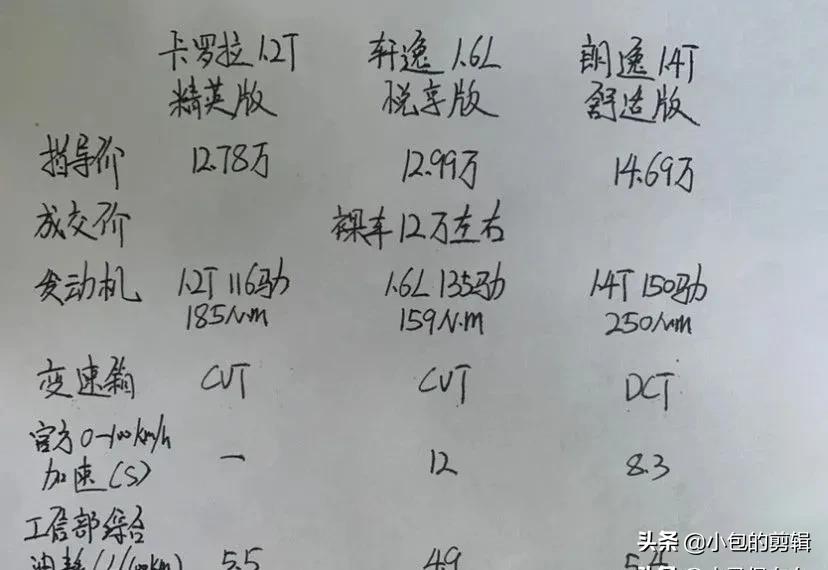 卡罗拉1.2T 轩逸1.6L 朗逸1.4T
精英版 悦享版 舒适版
指导价 12.78万 12.99万 14.69万
成交价 裸车12万左右
发动机 1.2T 116马力 1.6L 135马力 1.4T 150马力
185N·m 159N·m 250N·m
变速箱 CVT CVT DCT
官方0-100km/h
加速(S) — 12 8.3
工信部综合
油耗(L/100km) 5.5 4.9 5.4
头条 @小包的剪辑